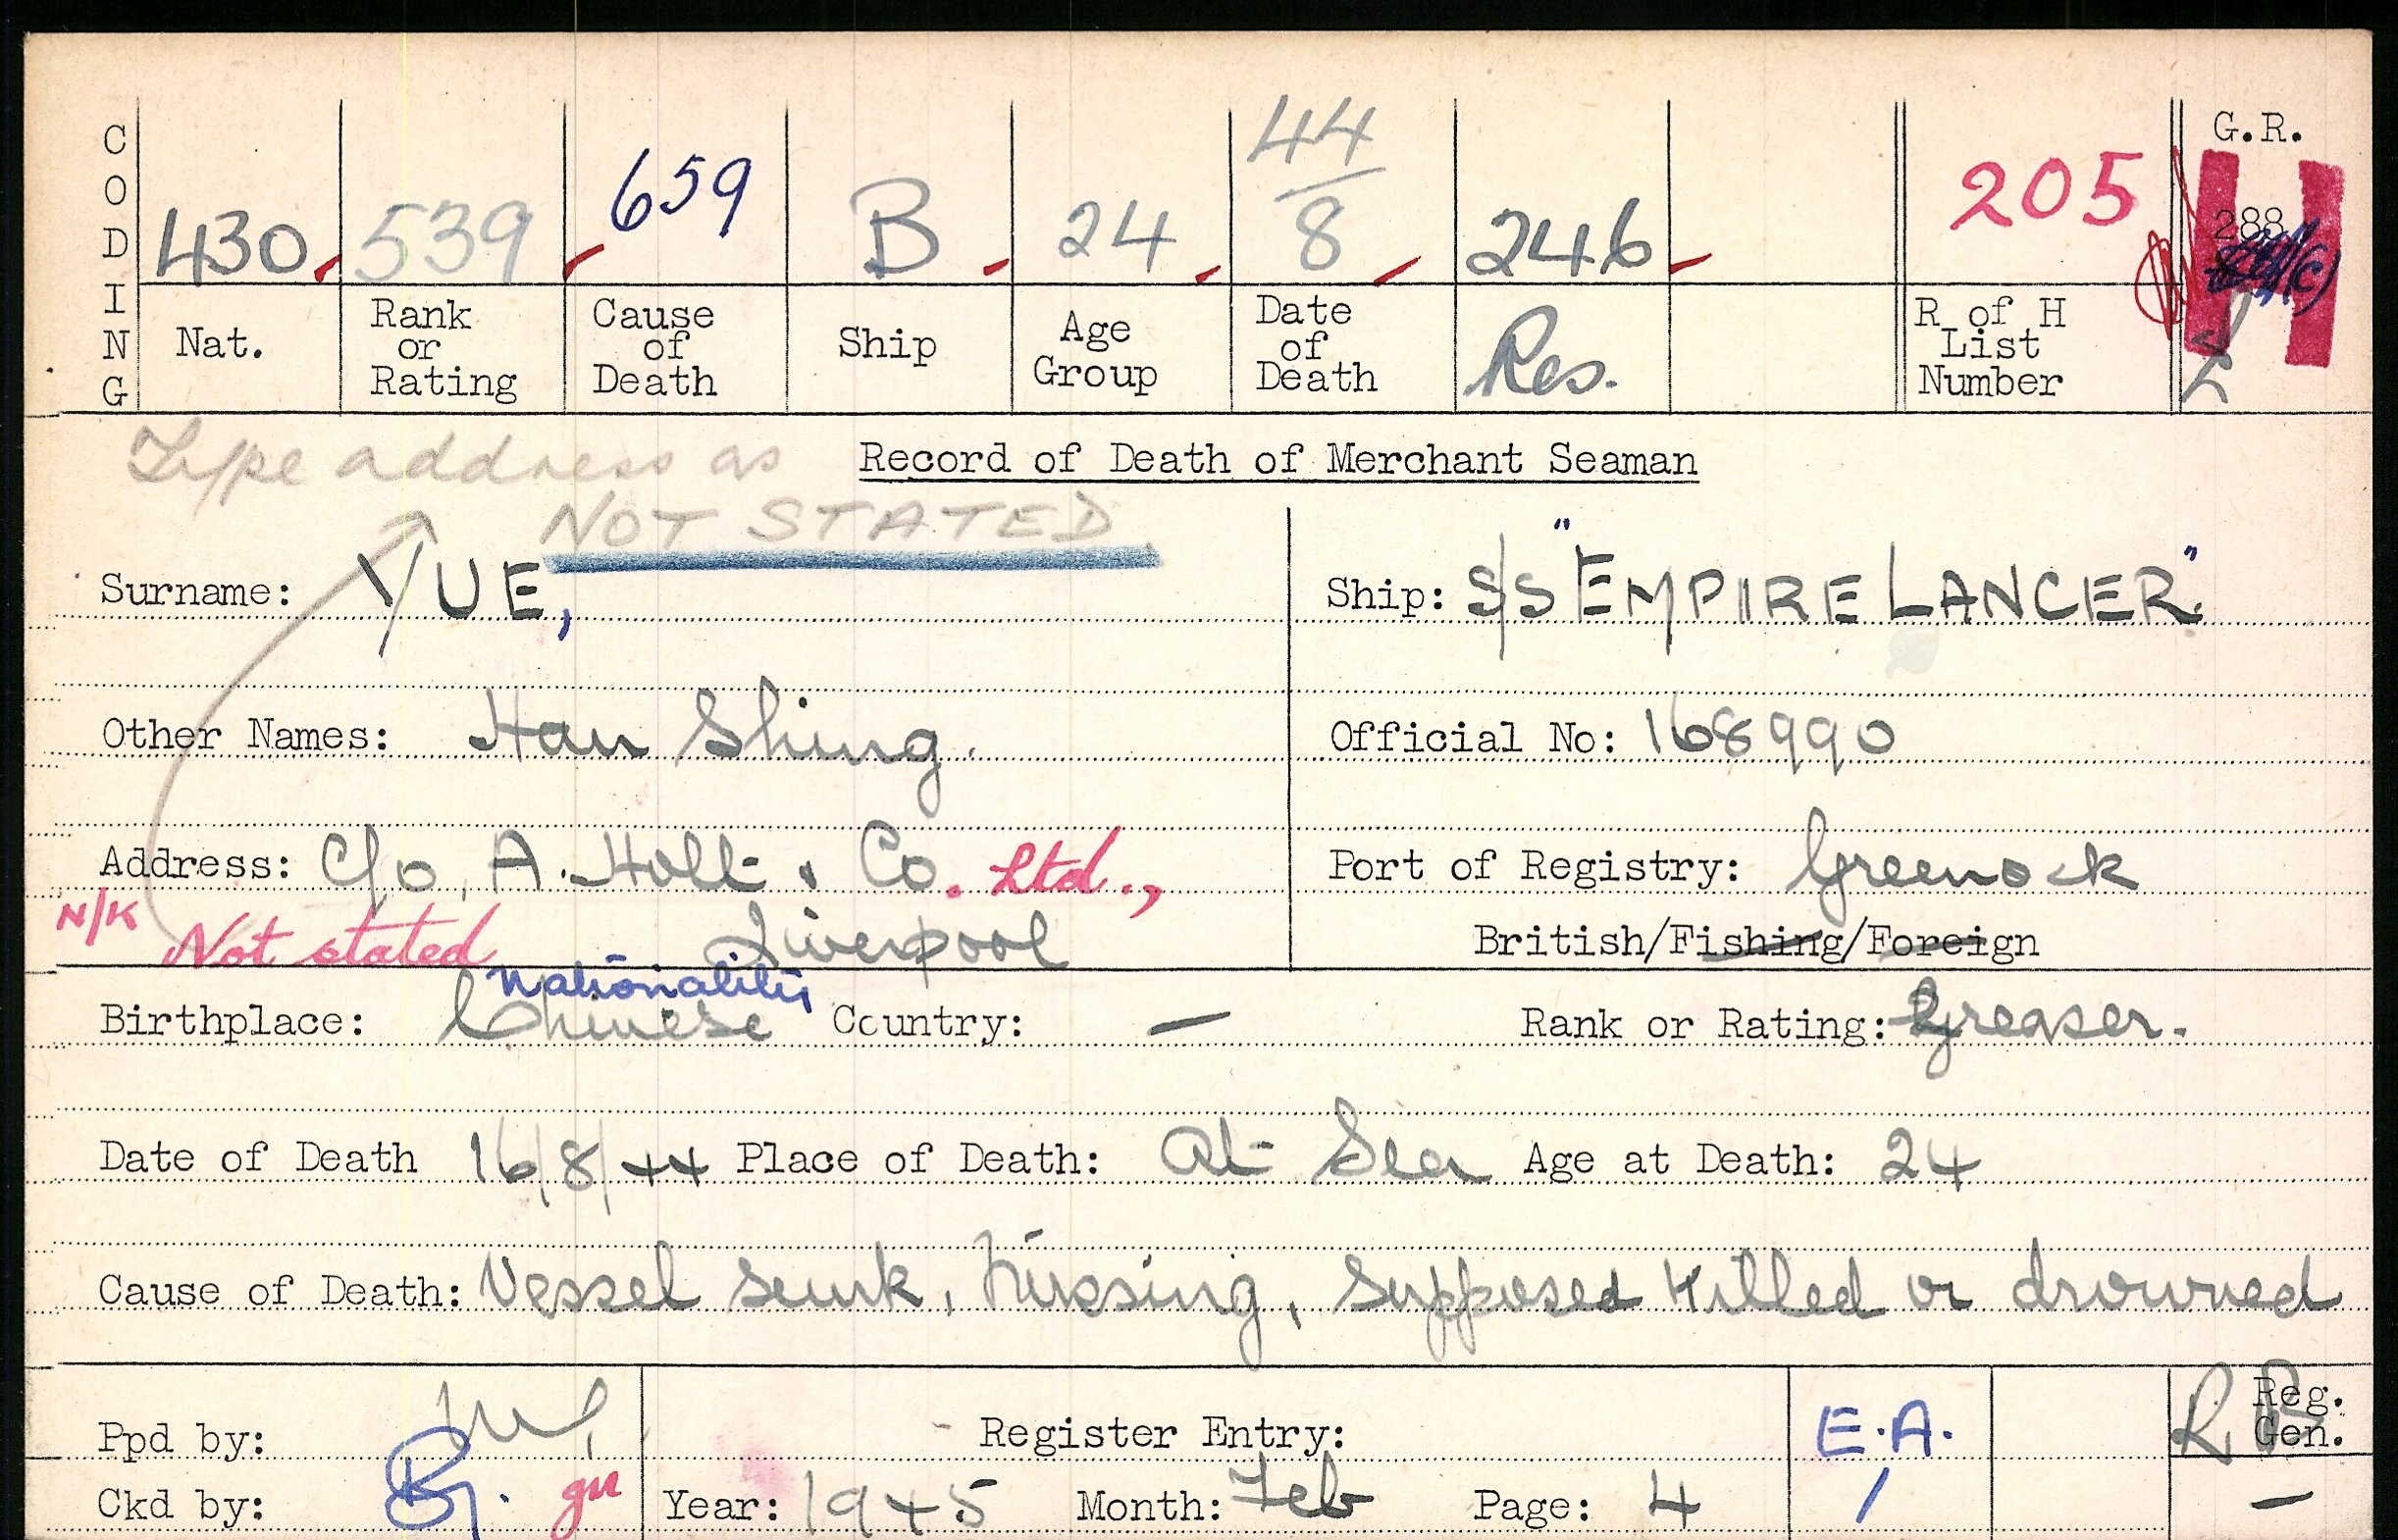 CODING
430 539 659 B 24 44/8 246 205 G.R.
288
Nat. Rank or Rating Cause of Death Ship Age Group Date of Death Res. R of H List Number
Type address as Record of Death of Merchant Seaman
NOT STATED
Surname: YUE, Ship: S/S "EMPIRE LANCER"
Other Names: Hau Shing. Official No: 168990
Address: C/o, A. Holt & Co. Ltd., Port of Registry: Greenock
N/K Not stated Liverpool British/Fishing/Foreign
Nationality
Birthplace: Chinese Country: — Rank or Rating: Greaser.
Date of Death 16/8/44 Place of Death: At Sea Age at Death: 24
Cause of Death: Vessel sunk, Missing, Supposed Killed or drowned
Ppd by: Register Entry: E.A. Reg. Gen.
Ckd by: Year: 1945 Month: Feb Page: 4 / —